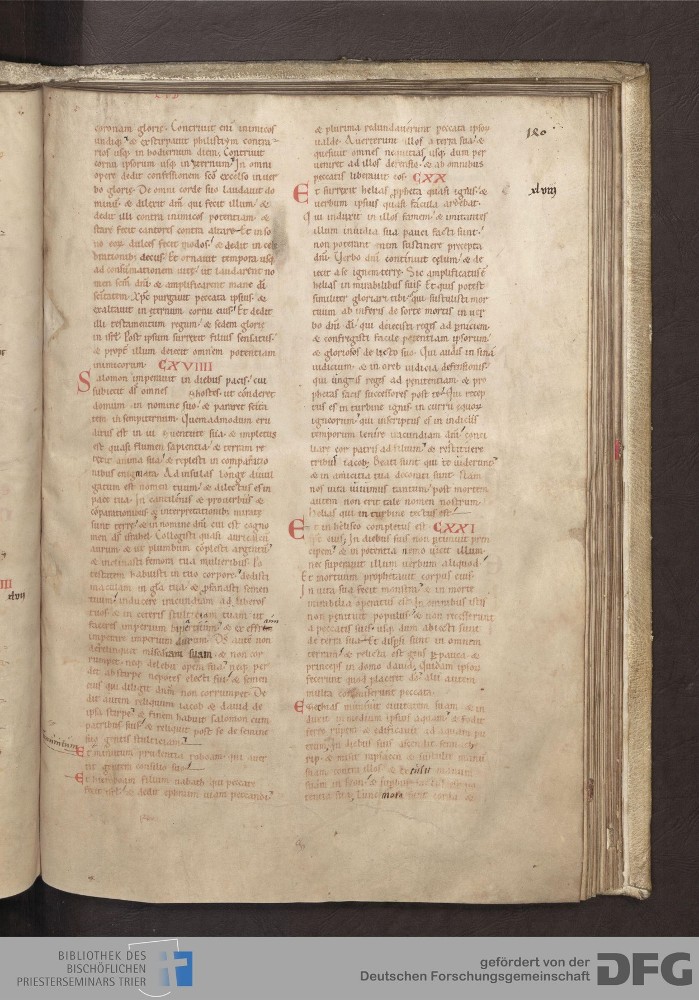 coronam glorie. Contriuit eni inimicos
undiq; & extirpauit philistiym contra
rios usq; in hodiernum diem. Contriuit
cornu ipsorum usq; in &ernum. In omni
opere dedit confessionem sco excelso in uer
bo glorie. De omni corde suo laudauit do
minu. & dilexit dm qui fecit illum. &
dedit illi contra inimicos potentiam. &
stare fecit cantores contra altare. Et in so
no eoru dulces fecit modos. & dedit in cele
brationibus decus. Et ornauit tempora usq;
ad consumationem uite. ut laudarent no
men scm dni. & amplificarent mane di
scitatem. Xpc purgauit peccata ipsius. &
exaltauit in &ernum cornu eius. Et dedit
illi testamentum regum. & sedem glorie
in isrl. Post ipsum surrexit filius sensatus.
& propt illum deiecit omnem potentiam
inimicorum. CXVIIII
Salomon imperauit in diebus pacis. cui
subiecit ds omnes hostes. ut conderet
domum in nomine suo. & pararet scita
tem in sempiternum. Quemadmodum eru
ditus est in iuuentute sua. & impletus
est quasi flumen sapientia. & terram re
texit anima sua. & replesti in comparatio
nibus enigmata. Ad insulas longe diuul
gatum est nomen tuum. & dilectus es in
pace tua. In cantilenis & prouerbiis &
coparationibus & interpretationib; mirate
sunt terre. & in nomine dni cui est cogno
men ds israhel. Collegisti quasi auricalcu
aurum. & ut plumbum coplesti argentu.
& inclinasti femora tua mulieribus. Po
testatem habuisti in tuo corpore. dedisti
maculam in gla tua. & pfanasti semen
tuum. inducere iracundiam ad liberos
tuos. & in ceteris stulticiam tuam. ut
faceres imperium bipertitum. & ex effraim
imperare imperium durum. Ds aute non
derelinquet misedam suam. & non cor
rumpet. nec delebit opera sua. neq; per
det ab stirpe nepotes electi sui. & semen
eius qui diligit dnm non corrumpet. De
dit autem reliquum iacob & dauid de
ipsa stirpe. & finem habuit salomon cum
patribus suis. & reliquit post se de semine
suo gentis stulticiam.
Et minutum prudentia roboam. qui auer
tit gentem consilio suo.
Et hieroboam filium nabath. qui peccare
fecit isrl. & dedit ephraim uiam peccandi.
& plurima redundauerunt peccata ipsoru
ualde. Auerterunt illos a terra sua. &
quesiuit omnes nequitias. usq; dum per
ueniret ad illos defensio. & ab omnibus
peccatis liberauit eos. CXX
Et surrexit helias ppheta quasi ignis. &
uerbum ipsius quasi facula ardebat.
Qui induxit in illos famem. & imitantes
illum inuidia sua pauci facti sunt.
non poterant enim sustinere precepta
dni. Verbo dni continuit celum. & de
iecit a se ignem terre. Sic amplificatus e
helias in mirabilibus suis. Et quis potest
similiter gloriari tibi. qui sustulisti mor
tuum ab inferis de sorte mortis in uer
bo dni di. qui deiecisti reges ad pniciem.
& confregisti facile potentiam ipsorum.
& gloriosos de lecto suo. Qui audis in sina
iudicium. & in oreb iudicia defensionis.
qui unguis reges ad penitentiam. & pro
phetas facis successores post te. Qui recep
tus es in turbine ignis. in curru equoru
igneorum. qui inscriptus es in iudiciis
temporum. lenire iracundiam dni. conci
liare cor patris ad filium. & restituere
tribus iacob. Beati sunt qui te uiderunt.
& in amicitia tua decorati sunt. Nam
nos uita uiuimus tantum. post mortem
autem non erit tale nomen nostrum.
Helias qui in turbine tectus est.
Et in heliseo completus est CXXI
spc eius. In diebus suis non ptimuit prin
cipem. & in potentia nemo uicit illum.
nec superauit illum uerbum aliquod.
Et mortuum prophetauit corpus eius.
In uita sua fecit monstra. & in morte
mirabilia operatus est. In omnibus istis
non penituit populus. & non recesserunt
a peccatis suis. usq; dum abiecti sunt
de terra sua. Et dispsi sunt in omnem
terram. & relicta est gens ppauca. &
princeps in domo dauid. Quidam ipsoru
fecerunt quod placeret do. alii autem
multa comiserunt peccata.
Ezechias muniuit ciuitatem suam. & in
duxit in medium ipsius aquam. & fodit
ferro rupem. & edificauit ad aquam pu
teum. In diebus suis ascendit sennacherib
suam contra illos. & extulit manum
suam in syon.
Tunc mota sunt corda. &
120
xlviij
xlvij
BIBLIOTHEK DES
BISCHÖFLICHEN
PRIESTERSEMINARS TRIER
gefördert von der
Deutschen Forschungsgemeinschaft
DFG